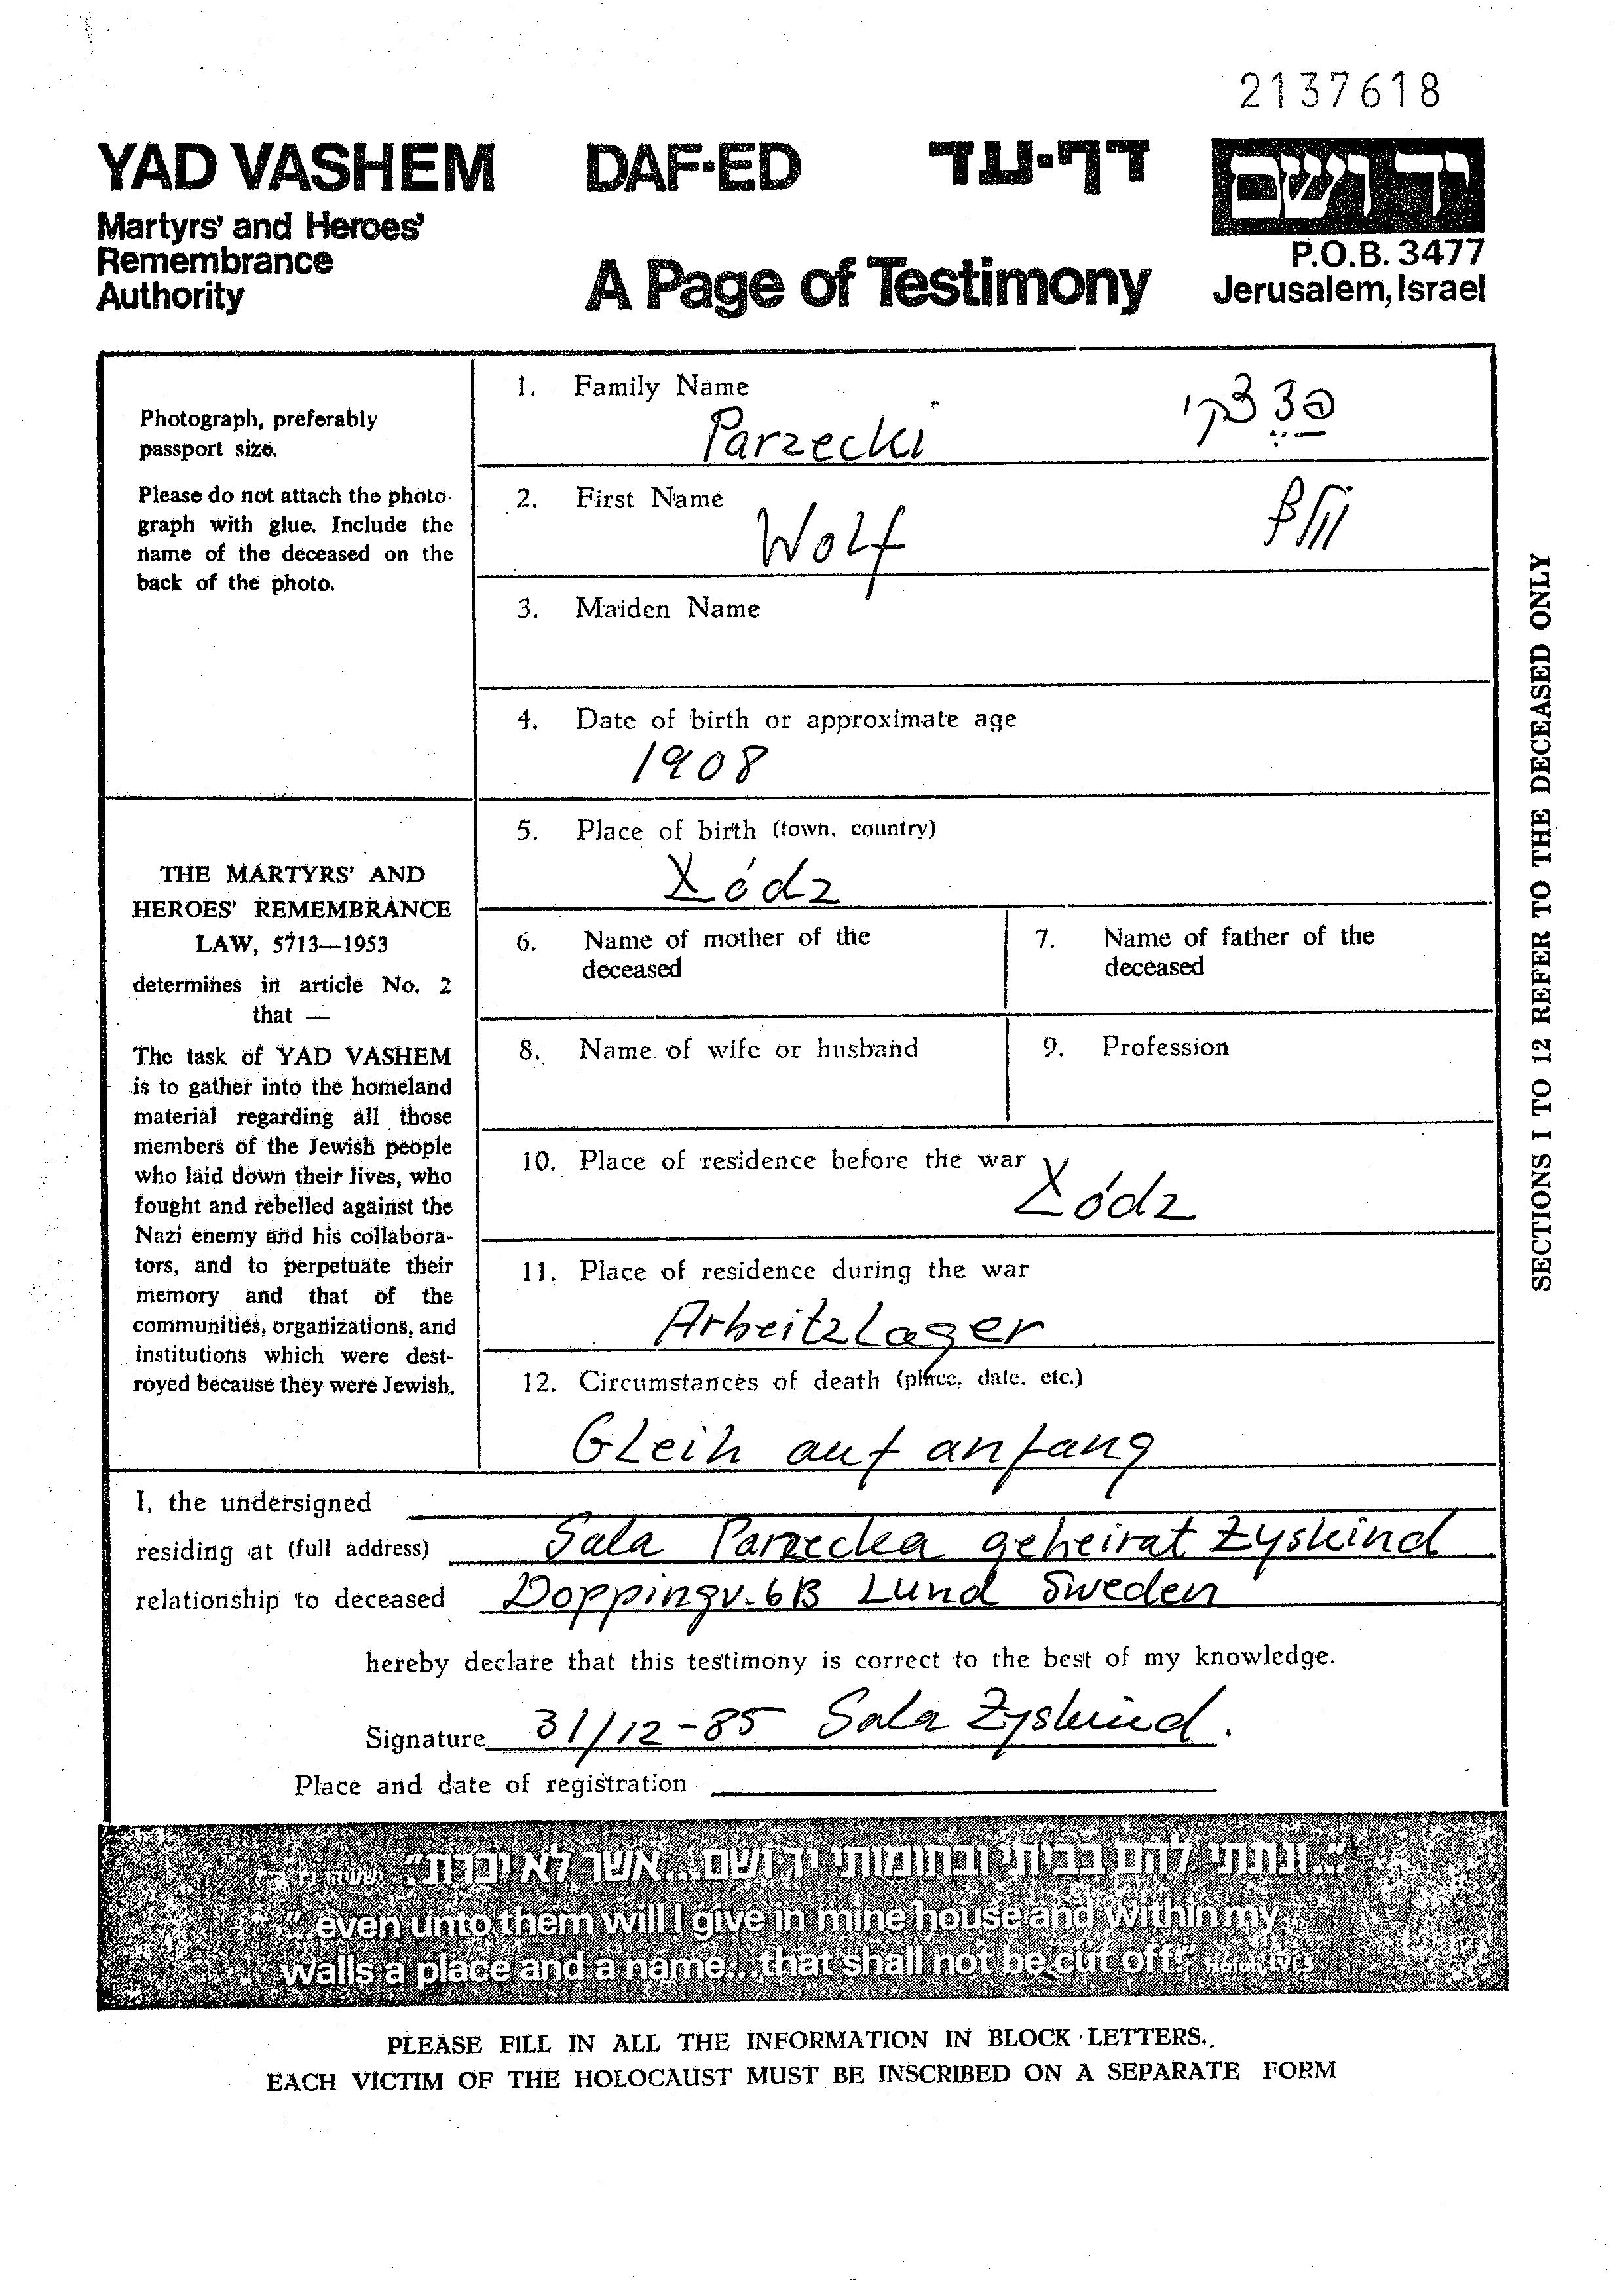 2137618
YAD VASHEM DAF-ED דף-עד ידושם
Martyrs' and Heroes'
Remembrance
Authority
A Page of Testimony
P.O.B. 3477
Jerusalem, Israel
Photograph, preferably
passport size.
Please do not attach the photo-
graph with glue. Include the
name of the deceased on the
back of the photo.
THE MARTYRS' AND
HEROES' REMEMBRANCE
LAW, 5713—1953
determines in article No. 2
that —
The task of YAD VASHEM
is to gather into the homeland
material regarding all those
members of the Jewish people
who laid down their lives, who
fought and rebelled against the
Nazi enemy and his collabora-
tors, and to perpetuate their
memory and that of the
communities, organizations, and
institutions which were dest-
royed because they were Jewish.
1. Family Name
Parzecki
2. First Name
Wolf וולף
3. Maiden Name
4. Date of birth or approximate age
1908
5. Place of birth (town, country)
Łódz
6. Name of mother of the
deceased
7. Name of father of the
deceased
8. Name of wife or husband
9. Profession
10. Place of residence before the war
Łódz
11. Place of residence during the war
Arbeitzlager
12. Circumstances of death (place, date, etc.)
Gleih auf anfang
I, the undersigned
residing at (full address) Sala Parzecka geheirat Zyskind
relationship to deceased Doppingv. 6B Lund Sweden
hereby declare that this testimony is correct to the best of my knowledge.
Signature 31/12-85 Sala Zyskind.
Place and date of registration
"...ונתתי להם בביתי ובחומותי יד ושם...אשר לא יכרת"
"...even unto them will I give in mine house and within my
walls a place and a name...that shall not be cut off."
PLEASE FILL IN ALL THE INFORMATION IN BLOCK LETTERS.
EACH VICTIM OF THE HOLOCAUST MUST BE INSCRIBED ON A SEPARATE FORM
SECTIONS 1 TO 12 REFER TO THE DECEASED ONLY